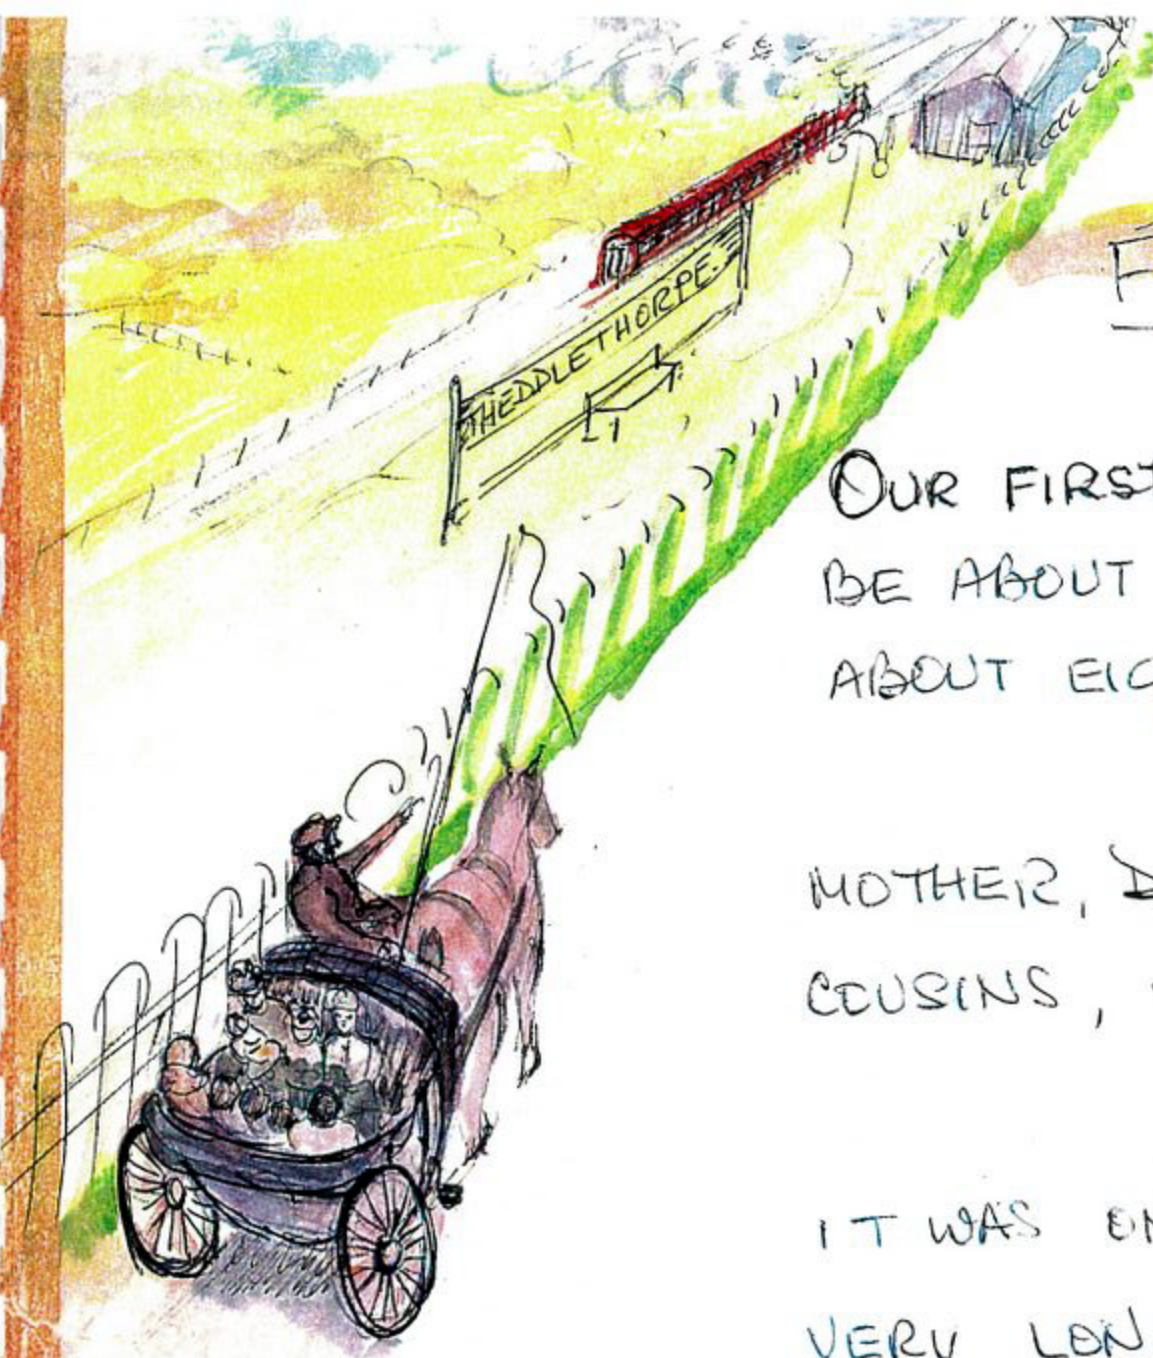 THEDDLETHORPE.
OUR FIRST
BE ABOUT
ABOUT
MOTHER,
COUSINS,
IT WAS
VERY